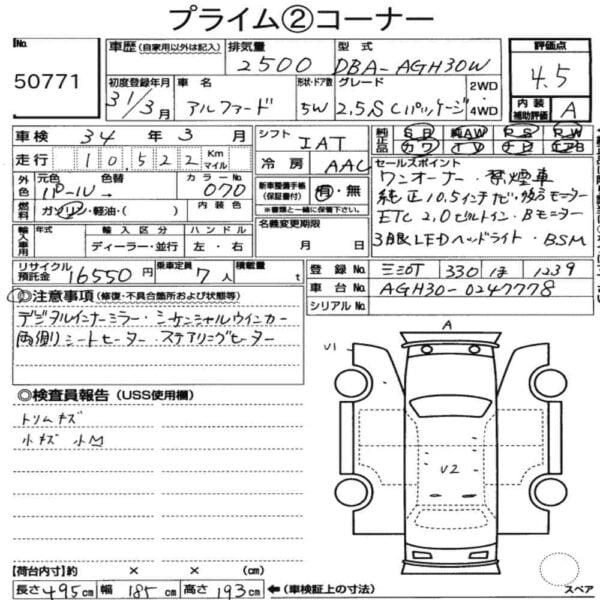 プライム②コーナー
No. 50771
車歴 (自家用以外は記入) 排気量 2500 型式 DBA-AGH30W
評価点 4.5
内装補助評価 A
初度登録年月 31/3月 車名 アルファード 形状・ドア数 5W グレード 2.5,S Cパッケージ 2WD・4WD
車検 34年3月 シフト IAT
純正品 SR 純AW PS PW
カワ TV ナビ エアB
走行 10,522 Km マイル 冷房 AAC
外色 元色 パール → 色替 カラーNo. 070
新車整備手帳(保証書付) 有・無
※書類と一緒に保管下さい。
燃料 ガソリン・軽油・( ) 内装色
セールスポイント
ワンオーナー・禁煙車
純正10.5インチナビ・後方モニター
ETC 2.0ビルトイン・Bモニター
3眼LEDヘッドライト・BSM
輸入車用 年式 輸入区分 ディーラー・並行 ハンドル 左・右
名義変更期限 月 日
リサイクル預託金 16550円 乗車定員 7人 積載量 t
登録No. 330 は 1239
車台No. AGH30-0247778
シリアルNo.
◎注意事項(修復・不具合箇所および状態等)
デジタルインナーミラー・シーケンシャルウインカー
両側シートヒーター・ステアリングヒーター
◎検査員報告(USS使用欄)
トリムキズ
小キズ 小M
A
V1
V2
【荷台内寸】約 × × (cm)
長さ 495cm 幅 185cm 高さ 193cm ←(車検証上の寸法)
スペア